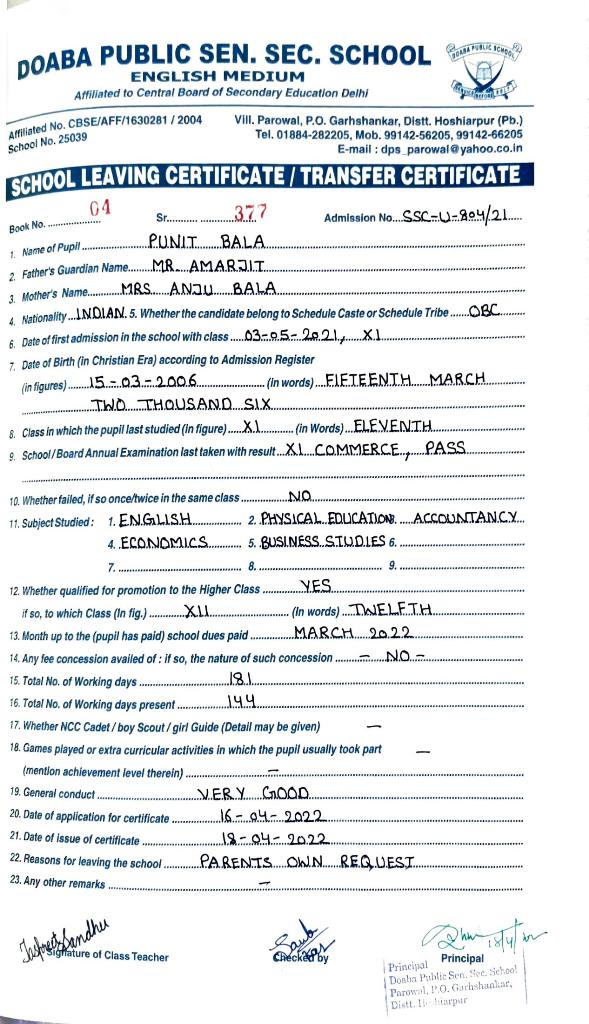 DOABA PUBLIC SEN. SEC. SCHOOL
ENGLISH MEDIUM
Affiliated to Central Board of Secondary Education Delhi
DOABA PUBLIC SCHOOL
Affiliated No. CBSE/AFF/1630281 / 2004
School No. 25039
Vill. Parowal, P.O. Garhshankar, Distt. Hoshiarpur (Pb.)
Tel. 01884-282205, Mob. 99142-56205, 99142-66205
E-mail : dps_parowal@yahoo.co.in
SCHOOL LEAVING CERTIFICATE / TRANSFER CERTIFICATE
Book No. 04 Sr. 377 Admission No. SSC-U-804/21
1. Name of Pupil PUNIT BALA
2. Father's Guardian Name MR. AMARJIT
3. Mother's Name MRS ANJU BALA
4. Nationality INDIAN 5. Whether the candidate belong to Schedule Caste or Schedule Tribe OBC
6. Date of first admission in the school with class 03-05-2021, XI
7. Date of Birth (in Christian Era) according to Admission Register
(in figures) 15-03-2006 (In words) FIFTEENTH MARCH
TWO THOUSAND SIX
8. Class in which the pupil last studied (In figure) XI (in Words) ELEVENTH
9. School/Board Annual Examination last taken with result XI COMMERCE, PASS
10. Whether failed, if so once/twice in the same class NO
11. Subject Studied : 1. ENGLISH 2. PHYSICAL EDUCATION 3. ACCOUNTANCY
4. ECONOMICS 5. BUSINESS STUDIES 6.
7. 8. 9.
12. Whether qualified for promotion to the Higher Class YES
if so, to which Class (In fig.) XII (In words) TWELFTH
13. Month up to the (pupil has paid) school dues paid MARCH 2022
14. Any fee concession availed of : if so, the nature of such concession - NO -
15. Total No. of Working days 181
16. Total No. of Working days present 144
17. Whether NCC Cadet / boy Scout / girl Guide (Detail may be given) —
18. Games played or extra curricular activities in which the pupil usually took part —
(mention achievement level therein) —
19. General conduct VERY GOOD
20. Date of application for certificate 16-04-2022
21. Date of issue of certificate 18-04-2022
22. Reasons for leaving the school PARENTS OWN REQUEST
23. Any other remarks —
Sandhu
Signature of Class Teacher
Checked by
18/4/22
Principal
Principal
Doaba Public Sen. Sec. School
Parowal, P.O. Garhshankar,
Distt. Hoshiarpur